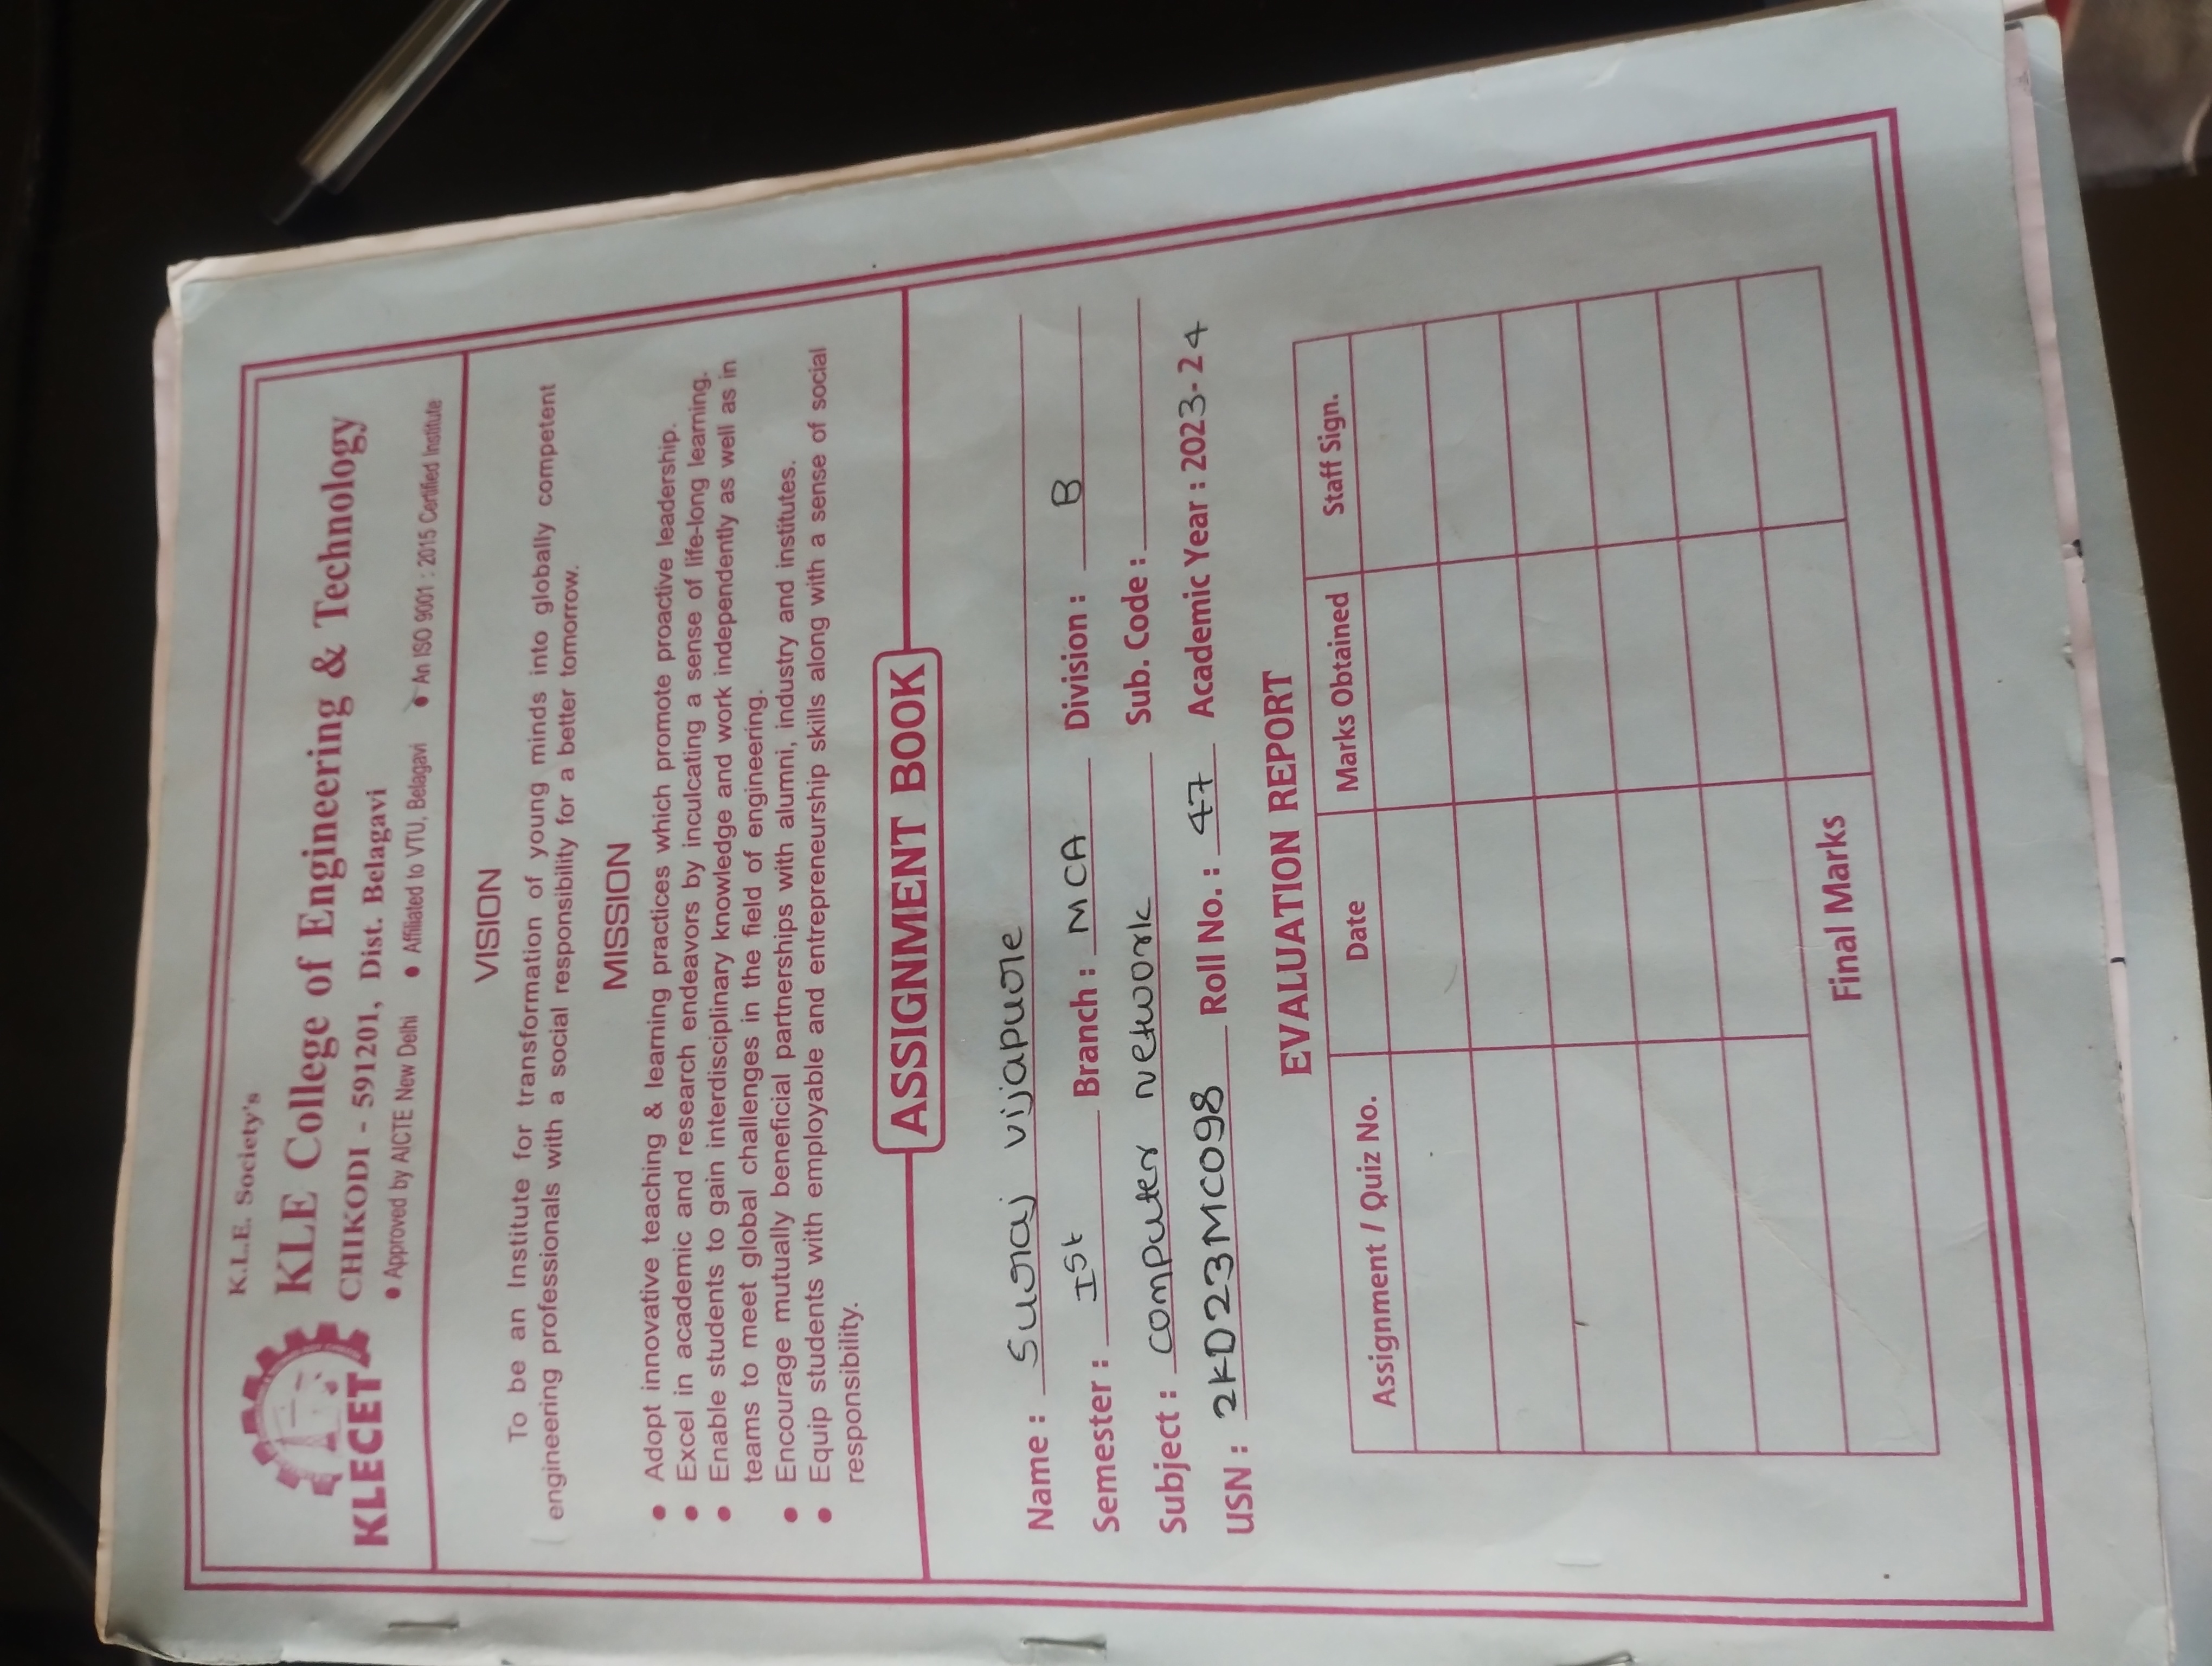 K.L.E. Society's
KLE College of Engineering & Technology
KLECET
CHIKODI - 591201, Dist. Belagavi
● Approved by AICTE New Delhi ● Affiliated to VTU, Belagavi ● An ISO 9001 : 2015 Certified Institute
VISION
To be an Institute for transformation of young minds into globally competent
engineering professionals with a social responsibility for a better tomorrow.
MISSION
● Adopt innovative teaching & learning practices which promote proactive leadership.
● Excel in academic and research endeavors by inculcating a sense of life-long learning.
● Enable students to gain interdisciplinary knowledge and work independently as well as in
teams to meet global challenges in the field of engineering.
● Encourage mutually beneficial partnerships with alumni, industry and institutes.
● Equip students with employable and entrepreneurship skills along with a sense of social
responsibility.
ASSIGNMENT BOOK
Name : Suraj vijapure
Semester : Ist Branch : MCA Division : B
Subject : computer network Sub. Code :
USN : 2KD23MC098 Roll No. : 47 Academic Year : 2023-24
EVALUATION REPORT
Assignment / Quiz No. Date Marks Obtained Staff Sign.
Final Marks